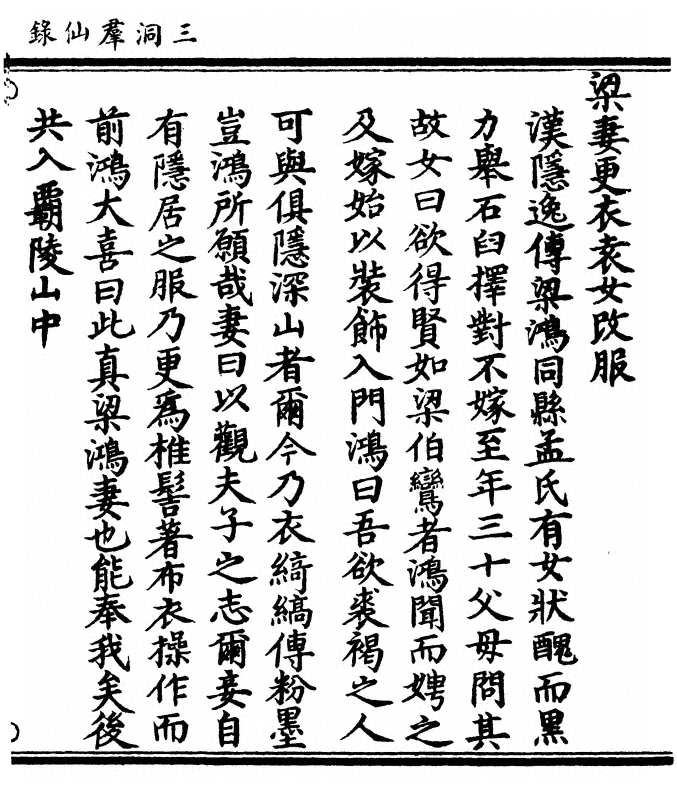 三洞羣仙錄
梁妻更衣袁女改服
漢隱逸傳梁鴻同縣孟氏有女狀醜而黑
力舉石臼擇對不嫁至年三十父母問其
故女曰欲得賢如梁伯鸞者鴻聞而娉之
及嫁始以裝飾入門鴻曰吾欲裘褐之人
可與俱隱深山者爾今乃衣綺縞傅粉墨
豈鴻所願哉妻曰以觀夫子之志爾妾自
有隱居之服乃更爲椎髻著布衣操作而
前鴻大喜曰此真梁鴻妻也能奉我矣後
共入霸陵山中